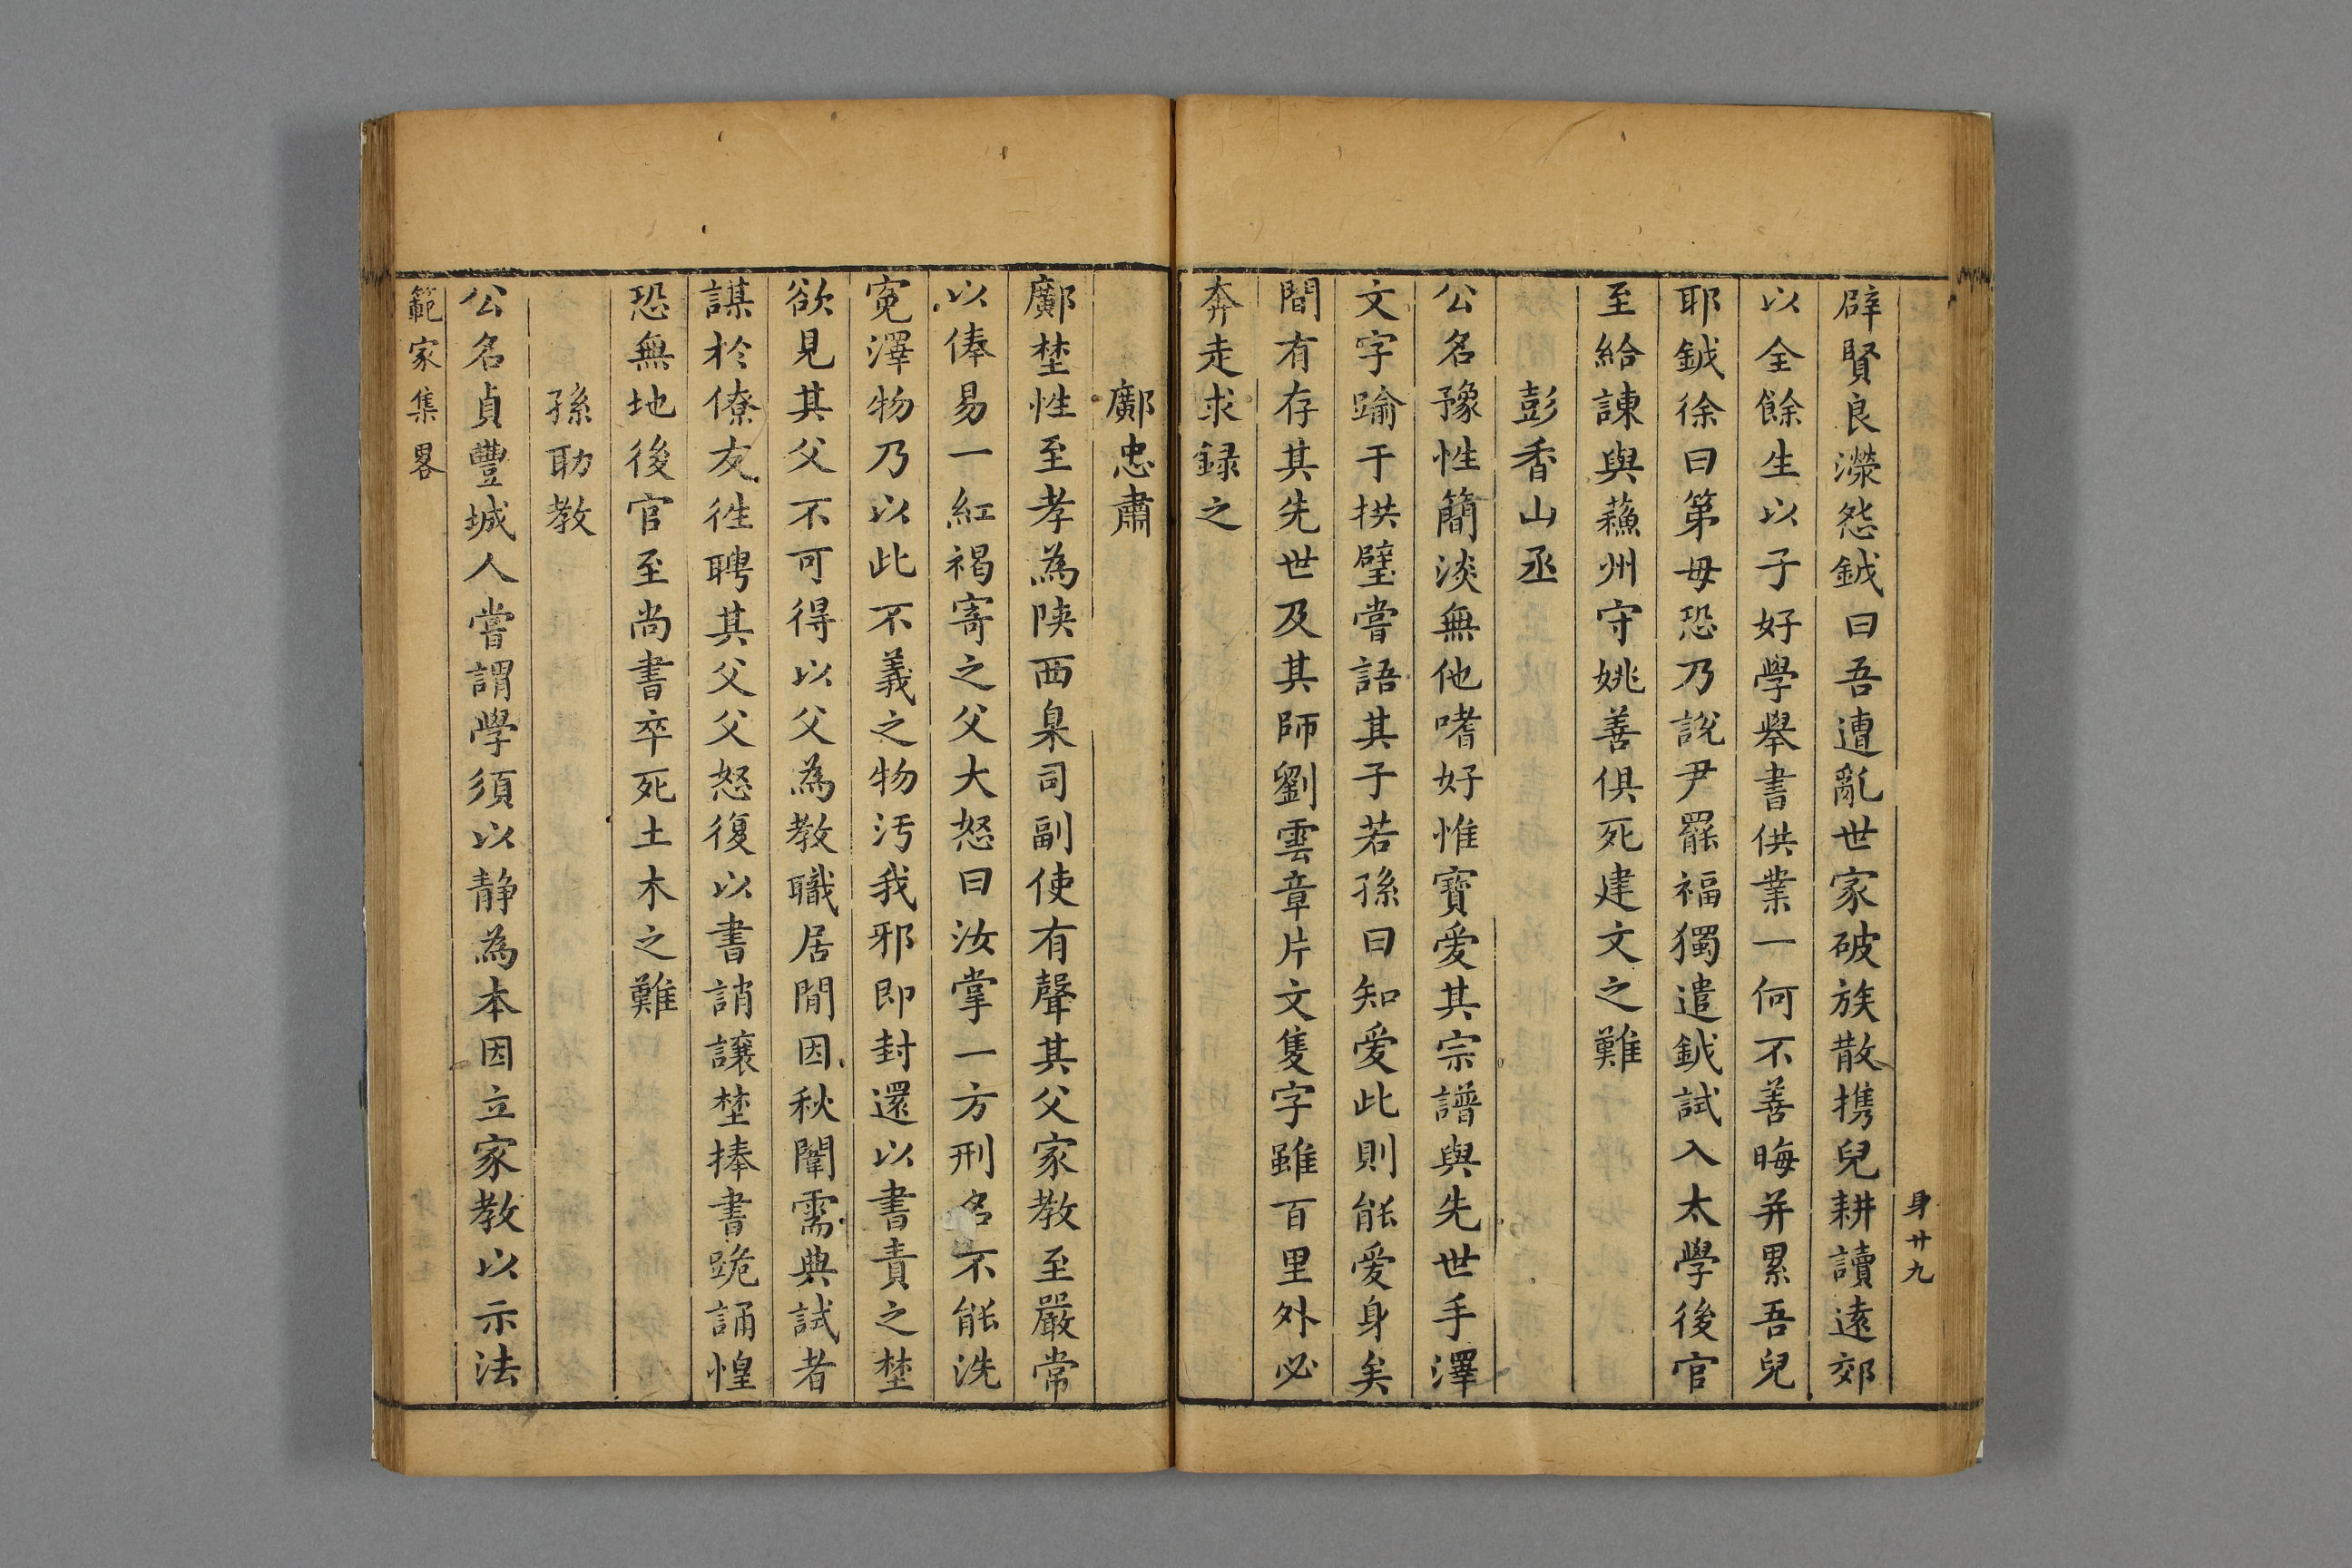 身廿九
辟賢良濚怨鉞曰吾遭亂世家破族散携兒耕讀遠郊
以全餘生以子好學舉書供業一何不善晦并累吾兒
耶鉞徐曰第毋恐乃說尹罷福獨遣鉞試入太學後官
至給諫與蘓州守姚善俱死建文之難
彭香山丞
公名豫性簡淡無他嗜好惟寶愛其宗譜與先世手澤
文字踰于拱璧嘗語其子若孫曰知愛此則能爱身矣
間有存其先世及其師劉雲章片文隻字雖百里外必
奔走求録之
鄺忠肅
鄺埜性至孝為陝西臬司副使有聲其父家教至嚴常
以俸易一紅褐寄之父大怒曰汝掌一方刑名不能洗
寃澤物乃以此不義之物汚我邪即封還以書責之埜
欲見其父不可得以父為教職居閒因秋闈需典試者
謀於僚友徃聘其父父怒復以書誚讓埜捧書跪誦惶
恐無地後官至尚書卒死土木之難
孫助教
公名貞豐城人嘗謂學須以静為本因立家教以示法
範家集畧